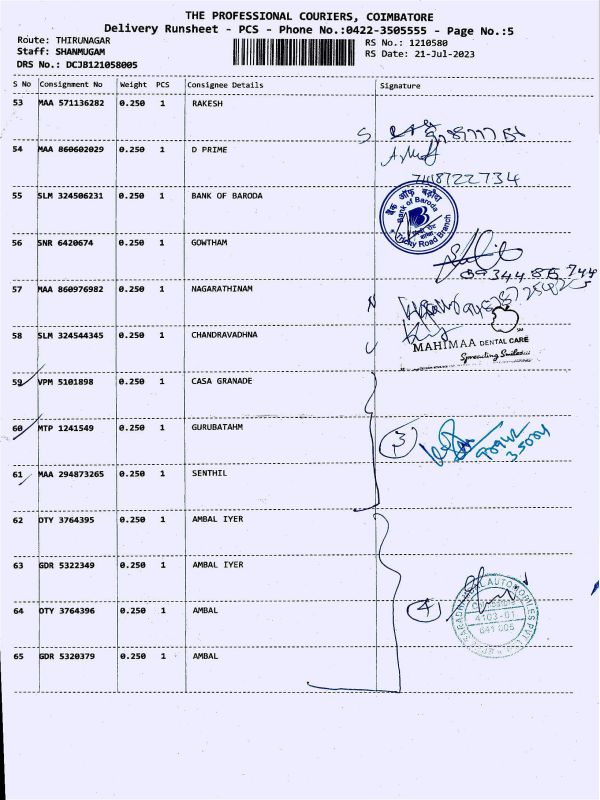 THE PROFESSIONAL COURIERS, COIMBATORE
Delivery Runsheet - PCS - Phone No.:0422-3505555 - Page No.:5
Route: THIRUNAGAR
Staff: SHANMUGAM
DRS No.: DCJB121058005
RS No.: 1210580
RS Date: 21-Jul-2023
S No Consignment No Weight PCS Consignee Details Signature
53 MAA 571136282 0.250 1 RAKESH
54 MAA 860602029 0.250 1 D PRIME
55 SLM 324506231 0.250 1 BANK OF BARODA
बैंक ऑफ़ बड़ौदा
Bank of Baroda
Trichy Road Branch
56 SNR 6420674 0.250 1 GOWTHAM
57 MAA 860976982 0.250 1 NAGARATHINAM
58 SLM 324544345 0.250 1 CHANDRAVADHNA
MAHIMAA DENTAL CARE
Spreading Smiles
59 VPM 5101898 0.250 1 CASA GRANADE
60 MTP 1241549 0.250 1 GURUBATAHM
3
61 MAA 294873265 0.250 1 SENTHIL
62 OTY 3764395 0.250 1 AMBAL IYER
63 GDR 5322349 0.250 1 AMBAL IYER
64 OTY 3764396 0.250 1 AMBAL
4
4103-01
641 005
65 GDR 5320379 0.250 1 AMBAL